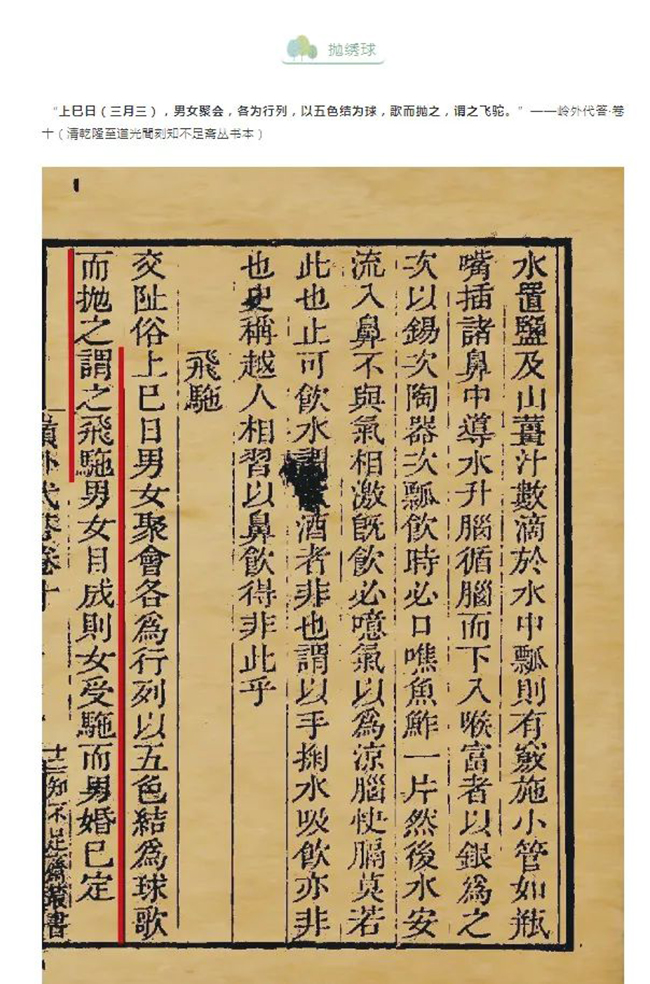 抛绣球
“上巳日（三月三），男女聚会，各为行列，以五色结为球，歌而抛之，谓之飞驼。”——岭外代答·卷
十（清乾隆至道光間刻知不足斋丛书本）
水置鹽及山薑汁數滴於水中瓢則有竅施小管如瓶
嘴插諸鼻中導水升腦循腦而下入喉富者以銀為之
次以錫次陶器次瓢飲時必口噍魚鮓一片然後水安
流入鼻不與氣相激旣飲必噫氣以為凉腦快膈莫若
此也止可飲水酒者非也謂以手掬水吸飲亦非
也史稱越人相習以鼻飲得非此乎
飛駞
交阯俗上巳日男女聚會各為行列以五色結為球歌
而抛之謂之飛駞男女目成則女受駞而男婚已定
嶺外代答卷十
十二知不足齋叢書